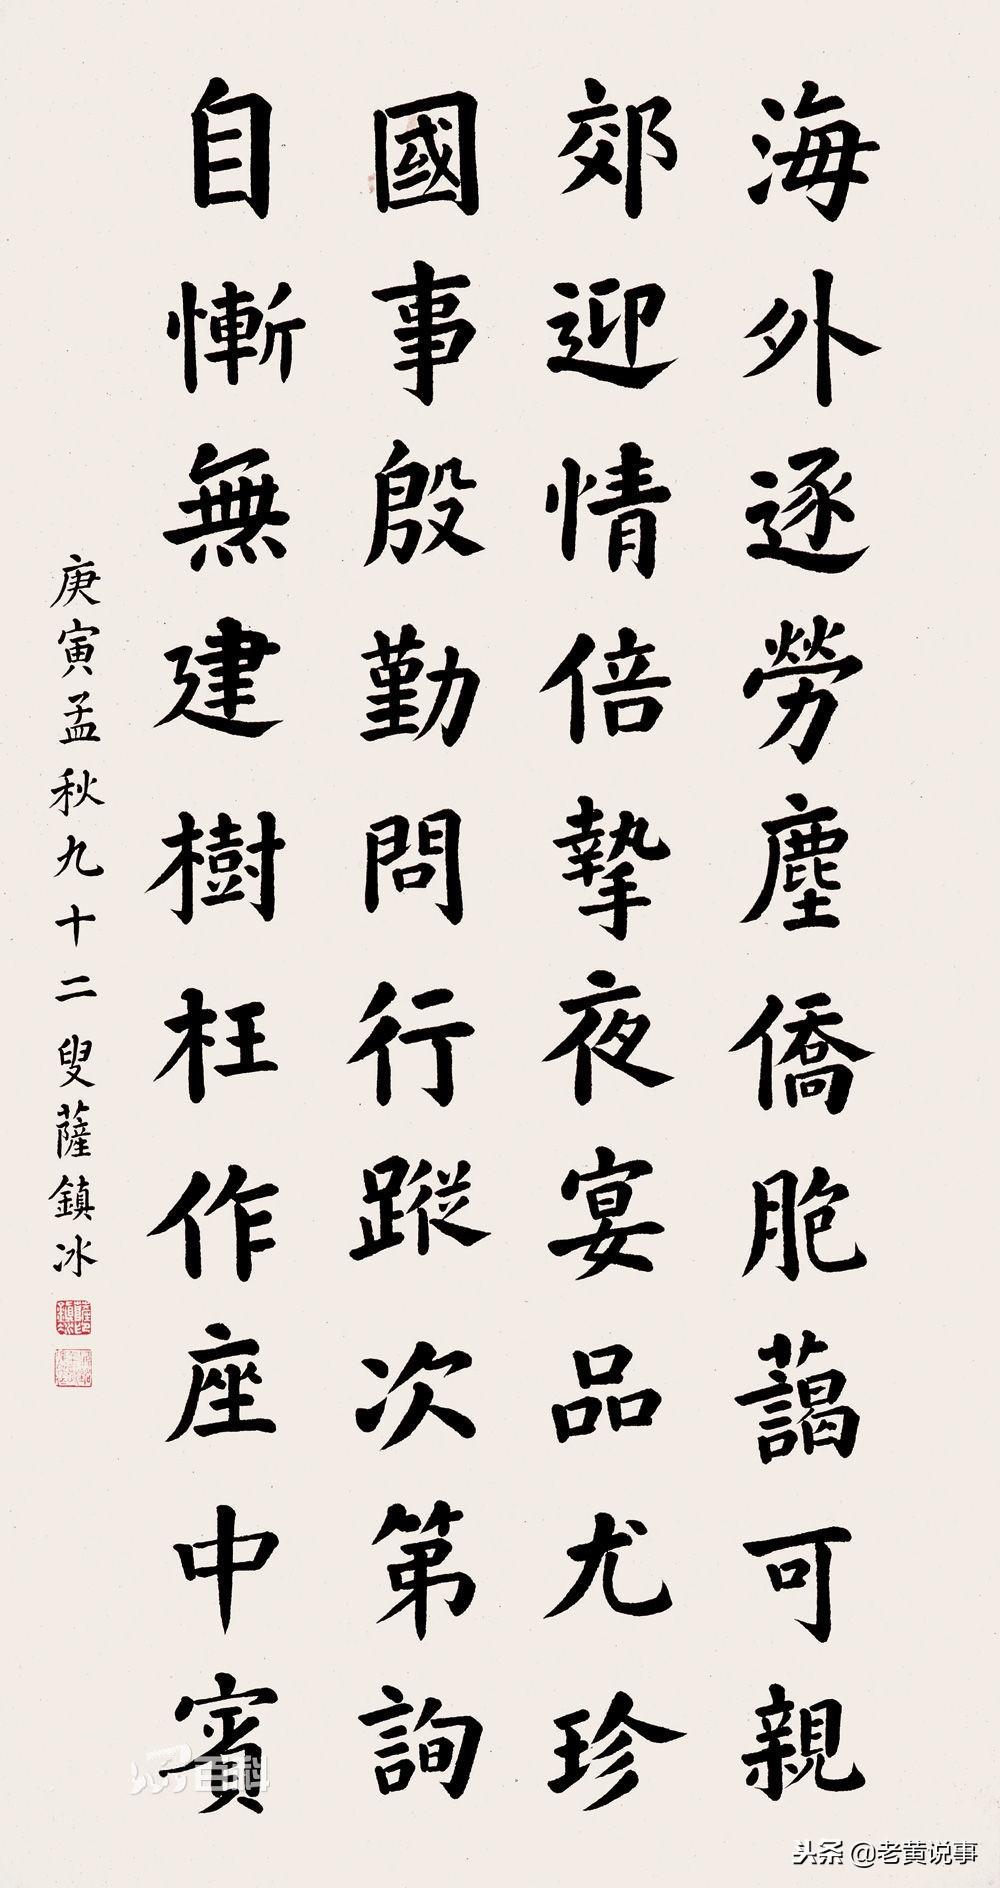 海外逐勞塵僑胞藹可親
郊迎情倍摯夜宴品尤珍
國事殷勤問行蹤次第詢
自慚無建樹枉作座中賓
庚寅孟秋九十二叟薩鎮冰
百科
头条@老黄说事